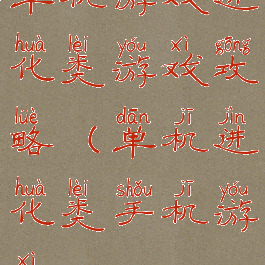 huà lèi yóu xì gōng
化类游戏攻
lüè dān jī jìn
略(单机进
huà lèi shǒu jī yóu
化类手机游
xì